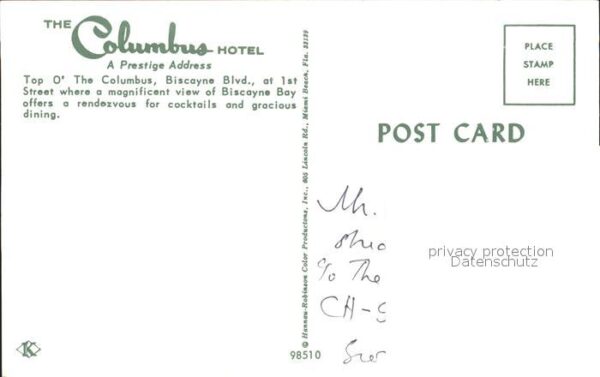 THE Columbus HOTEL
A Prestige Address
Top O' The Columbus, Biscayne Blvd., at 1st
Street where a magnificent view of Biscayne Bay
offers a rendezvous for cocktails and gracious
dining.
K
© Hannau-Robinson Color Productions, Inc., 905 Lincoln Rd., Miami Beach, Fla. 33139
98510
PLACE
STAMP
HERE
POST CARD
Mr.
c/o The
CH-
privacy protection
Datenschutz